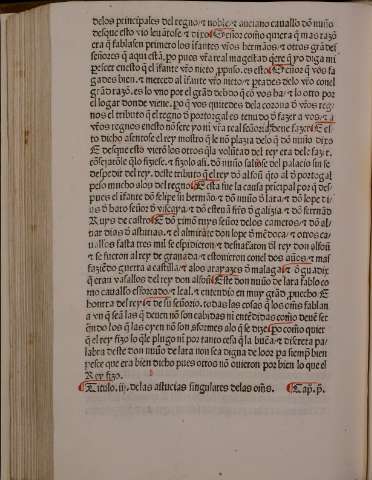 delos principales del regno/ ⁊ noble/ ⁊ anciano cauallo dõ nuño
desque esto vio leuãtose/ ⁊ dixo Señor como quiera q̃ mas razõ
era q̃ fablasen primero los ifantes vr̃os hermãos/ ⁊ otros grãdes
señores q̃ aqui estã. po pues vr̃a real magestad q̃ere q̃ yo diga mi
pescer enesto q̃ el ifante vr̃o nieto
gades bien. ⁊ merced al ifante vr̃o nieto ⁊ pẽtes delo vr̃o conel
grãd razõ. es lo vno por el grãd debdo q̃ cõ vos ha/ ⁊ lo otro por
el logar donde viene. po q̃ vos quitedes dela corona d̃ vr̃os reg-
nos el tributo q̃ el regno d̃ portogal es tenudo d̃ fazer a vos/ ⁊ a
vr̃os regnos enesto nõ sere yo ni vr̃a real señoria deue fazer E es-
to dicho asentose el rey mostro q̃ le nõ plazia delo q̃ dõ nuño dixo
E desque esto vierõ los otros q̃la volũtad del rey era dele faz̃
cõsejarõle q̃lo fiziese. ⁊ fizolo asi. dõ nuño saliose del palacio sin se
despedir del rey. deste tributo q̃ el rey dõ alfoñ q̃to al d̃ portogal
peso mucho alos del regno E esta fue la causa prĩcipal por q̃ des-
pues el ifante dõ felipe su hermão/ ⁊ dõ nuño d̃ lara/ ⁊ dõ lope di-
as d̃ haro señor d̃ viscaya/ ⁊ dõ esteuã frr̃s d̃ galizia/ ⁊ dõ ferrnãd
Ruys de castro E dõ ximõ ruys señor delos cameros/ ⁊ dõ al-
uar dias d̃ asturias/ ⁊ el almirãte don lope d̃ mẽdoça/ ⁊ otros ca-
uallos fasta tres mil se espidieron ⁊ desnafaron d̃l rey don alfoñ
⁊ se fueron al rey de granada/ ⁊ estouieron conel dos años/ ⁊ mas
faziẽdo guerra a castilla/ ⁊ alos arrayazes d̃ malaga/ ⁊ d̃ guadix
q̃ erau vasallos del rey don alfoñ Este don nuño de lara fablo co
mo cauallo esforcado/ ⁊ leal/ ⁊ entendio en muy grãd puecho E
honrra del rey/ ⁊ de su señorio. todas las cosas q̃ los om̃s fablan
a vn q̃ seã las q̃ deuen nõ son cabidas ni entẽdidas como deuẽ ser
q̃ndo los q̃ las oyen nõ son sformes alo q̃ se dize po como quier
q̃ el rey fizo lo q̃le plugo ni por tanto cesa q̃ la buẽa/ ⁊ discreta pa-
labra deste don nuño de lara non sea digna de loor pa siemp̃ bien
pesce que era bien dicho pues otros nõ ouieron por bien lo que el
Rey fizo.
Titolo. iij. delas astucias singulares delos om̃s. Cap̃. p̃.